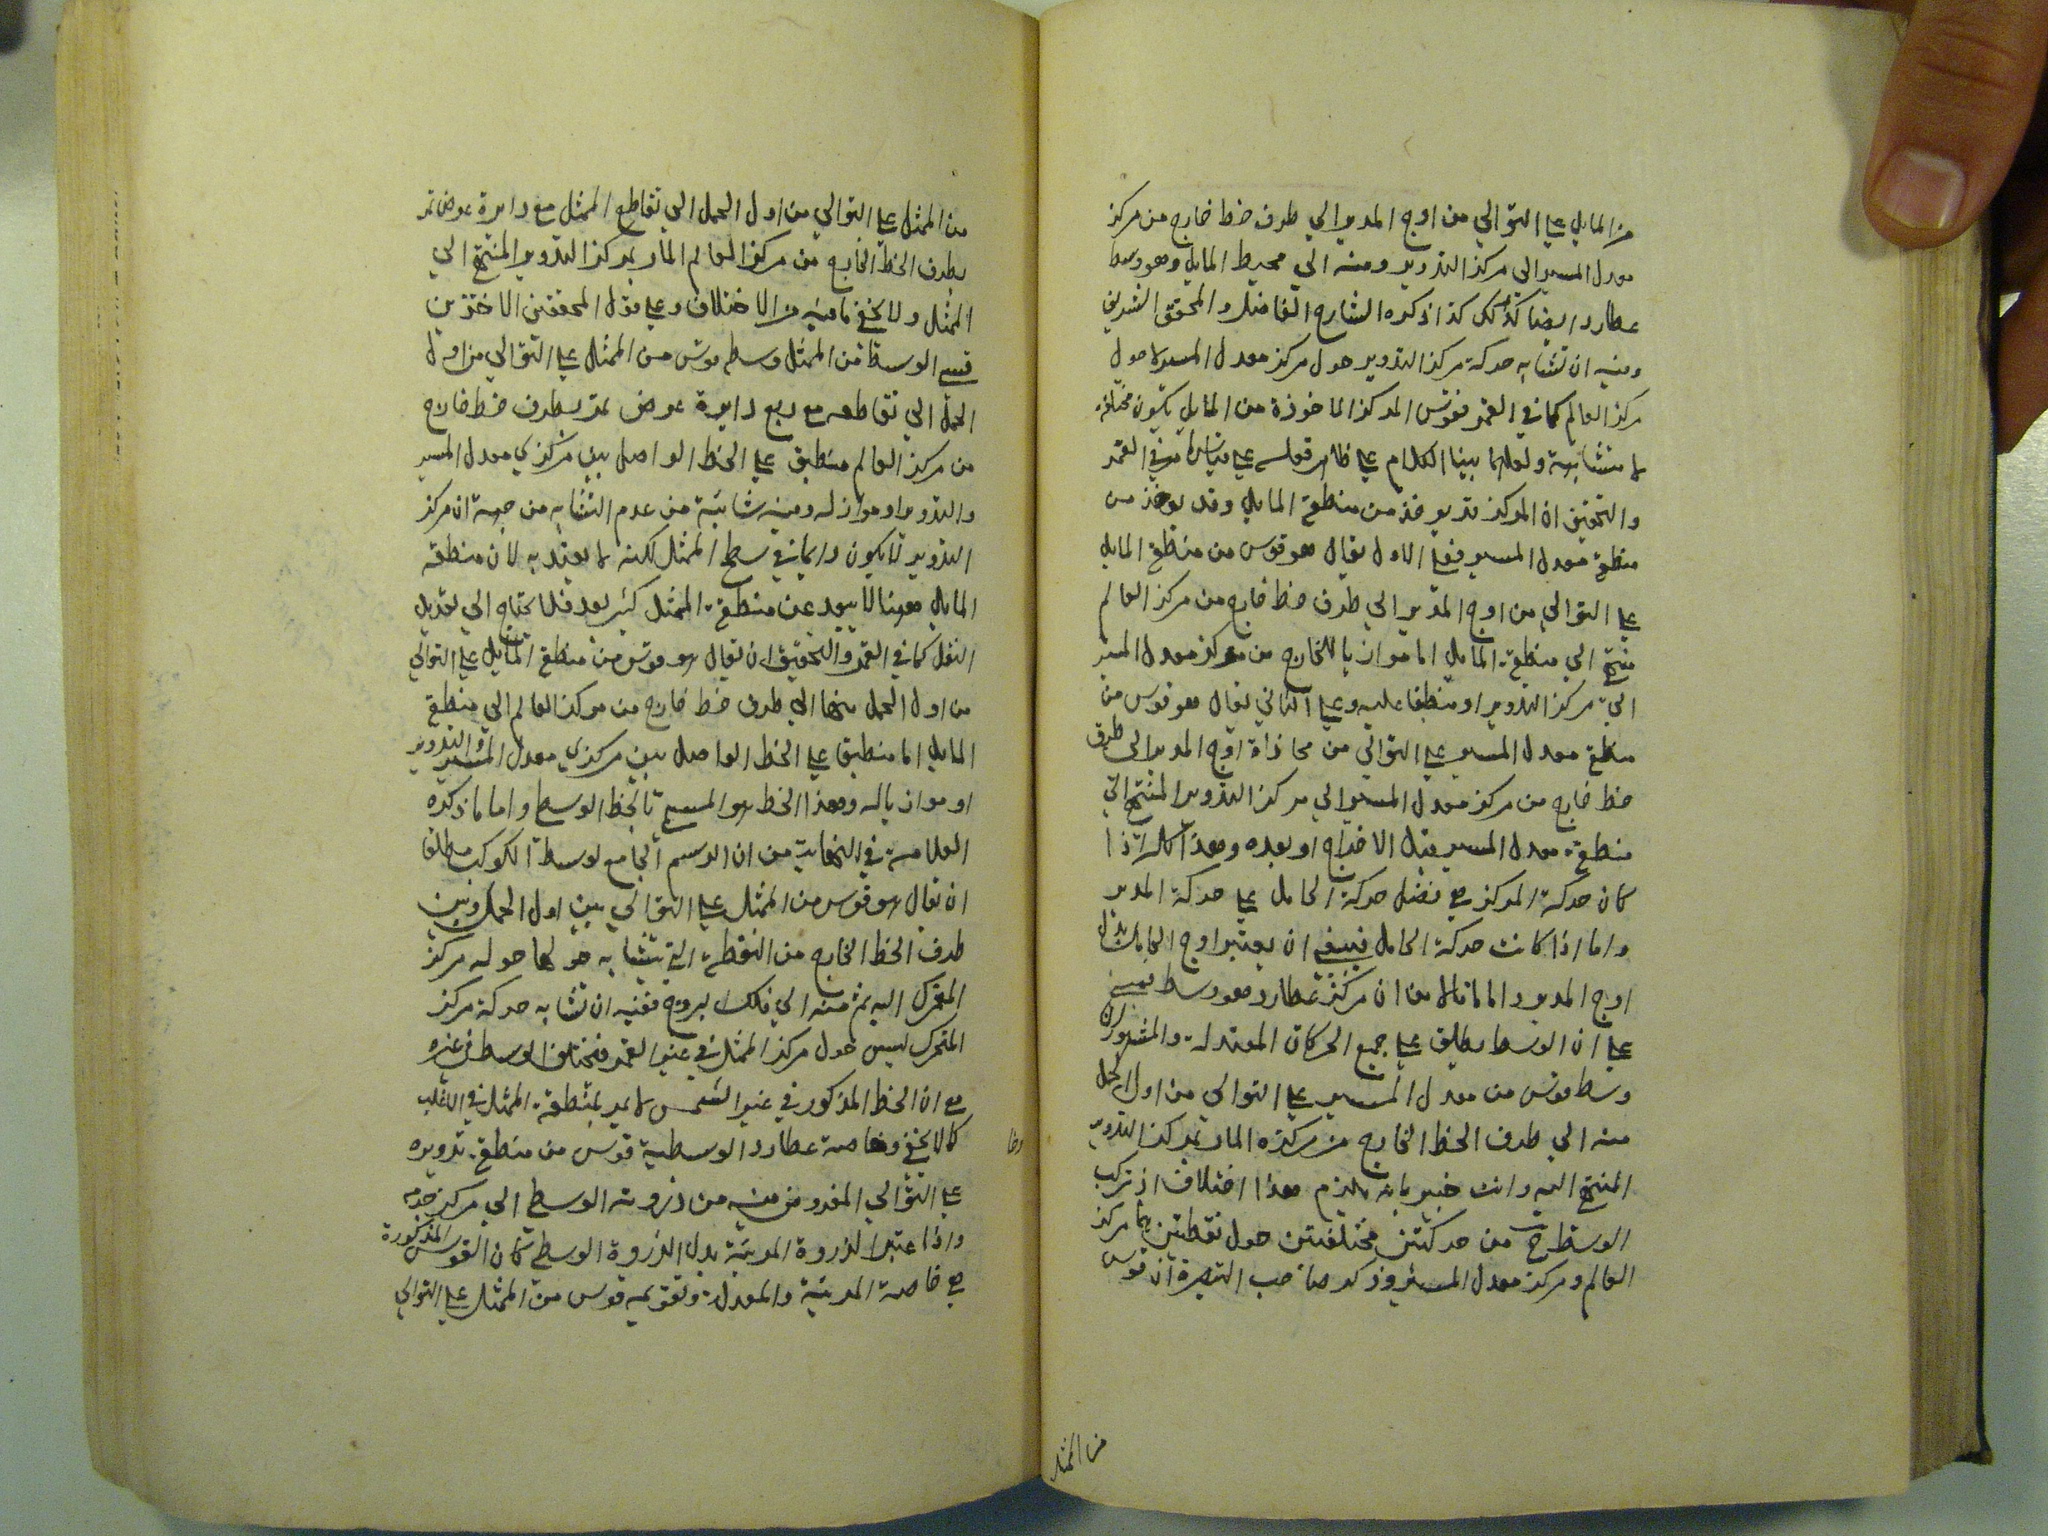 من المايل علي التوالي من اوج المدير الي طرف خط خارج من مركز
معدل المسير الى مركز التدوير ومنه الي محيط المايل وهو وسط
عطارد ايضا كذلك كذا ذكره الشارح الفاضل والمحقق الشريف
وفيه ان تشابه حركة مركز التدوير حول مركز معدل المسير لا حول
مركز العالم كما في القمر فقوس المركز الماخوذة من المايل يكون مختلفة
لا متشابهة ولعلهما بينا الكلام علي ظاهر قوله علي قياس ما مر في القمر
والتحقيق ان المركز قد يوخذ من منطقة المايل وقد يوخذ من
منطقة معدل المسير فعلي الاول يقال هو قوس من منطقة المايل
علي التوالي من اوج المدير الي طرف خط خارج من مركز العالم
منته الي منطقة المايل اما موازيا للخارج من مركز معدل المسير
الي مركز التدوير او منطبقا عليه وعلي الثاني يقال هو قوس من
منطقة معدل المسير علي التوالي من محاذاة اوج المدير الى طرف
خط خارج من مركز معدل المسير الي مركز التدوير المنتهي الي
منطقة معدل المسير قبل الاخراج او بعده وهذا كله اذا
كان حركة المركز هي فضل حركة الحامل علي حركة المدير
واما اذا كانت حركة الحامل فينبغي ان يعتبر اوج الحامل بدل
اوج المدير واما ما قال من ان مركز عطارد هو وسط فمبني
علي ان الوسط يطلق علي جميع الحركات المعتدلة والمشهور ان
وسط قوس من معدل المسير علي التوالي من اول الحمل
منه الي طرف الخط الخارج من مركزه المار بمركز التدوير
المنتهي اليه وانت خبير بانه يلزم هذا اختلاف اذ تركب
الوسط ح من حركتين مختلفتين حول نقطتين هما مركز
العالم ومركز معدل المسير وذكر صاحب التبصرة ان قوس
من الممثل
من الممثل علي التوالي من اول الحمل الي تقاطع الممثل مع دايرة عرض تمر
بطرف الخط الخارج من مركز العالم المار بمركز التدوير المنتهي الي
الممثل ولا يخفي ما فيه من الاختلاف وعلي قول المحققين الاخذين
قسي الوسط من الممثل وسطه قوس من الممثل علي التوالي من اول
الحمل الي تقاطعه مع ربع دايرة عرض تمر بطرف خط خارج
من مركز العالم منطبق علي الخط الواصل بين مركزي معدل المسير
والتدوير او مواز له وفيه شائبة من عدم التشابه من جهة ان مركز
التدوير لا يكون دايما في سطح الممثل لكنه لا يعتد به لان منطقة
المايل ههنا لا يبعد عن منطقة الممثل كثير بعد فلا يحتاج الي تعديل
النقل كما في القمر والتحقيق ان يقال هو قوس من منطقة المايل علي التوالي
من اول الحمل منها الي طرف خط خارج من مركز العالم الي منطقة
المايل اما منطبقا علي الخط الواصل بين مركزي معدل المسير والتدوير
او موازيا له وهذا الخط هو المسمي بالخط الوسط واما ما ذكره
العلامة في النهاية من ان الرسم الجامع لوسط الكوكب مطلقا
ان يقال هو قوس من الممثل علي التوالي بين اول الحمل وبين
طرف الخط الخارج من النقطة التي يتشابه حركة حولها مركز
المتحرك اليه ثم منه الي فلك البروج ففيه ان تشابه حركة مركز
المتحرك ليس حول مركز الممثل في غير القمر فيختلف الوسط في غيره
مع ان الخط المذكور في غير الشمس لا يمر بمنطقة الممثل في الاغلب
كما لا يخفي وخاصة عطارد الوسطية قوس من منطقة تدويره
علي التوالي المفروض فيه من ذروته الوسطي الي مركز جرمه
واذا اعتبر الذروة المرئية بدل الذروة الوسطي كان القوس المذكورة
هي خاصة المرئية والمعدلة وتقويمه قوس من الممثل علي التوالي